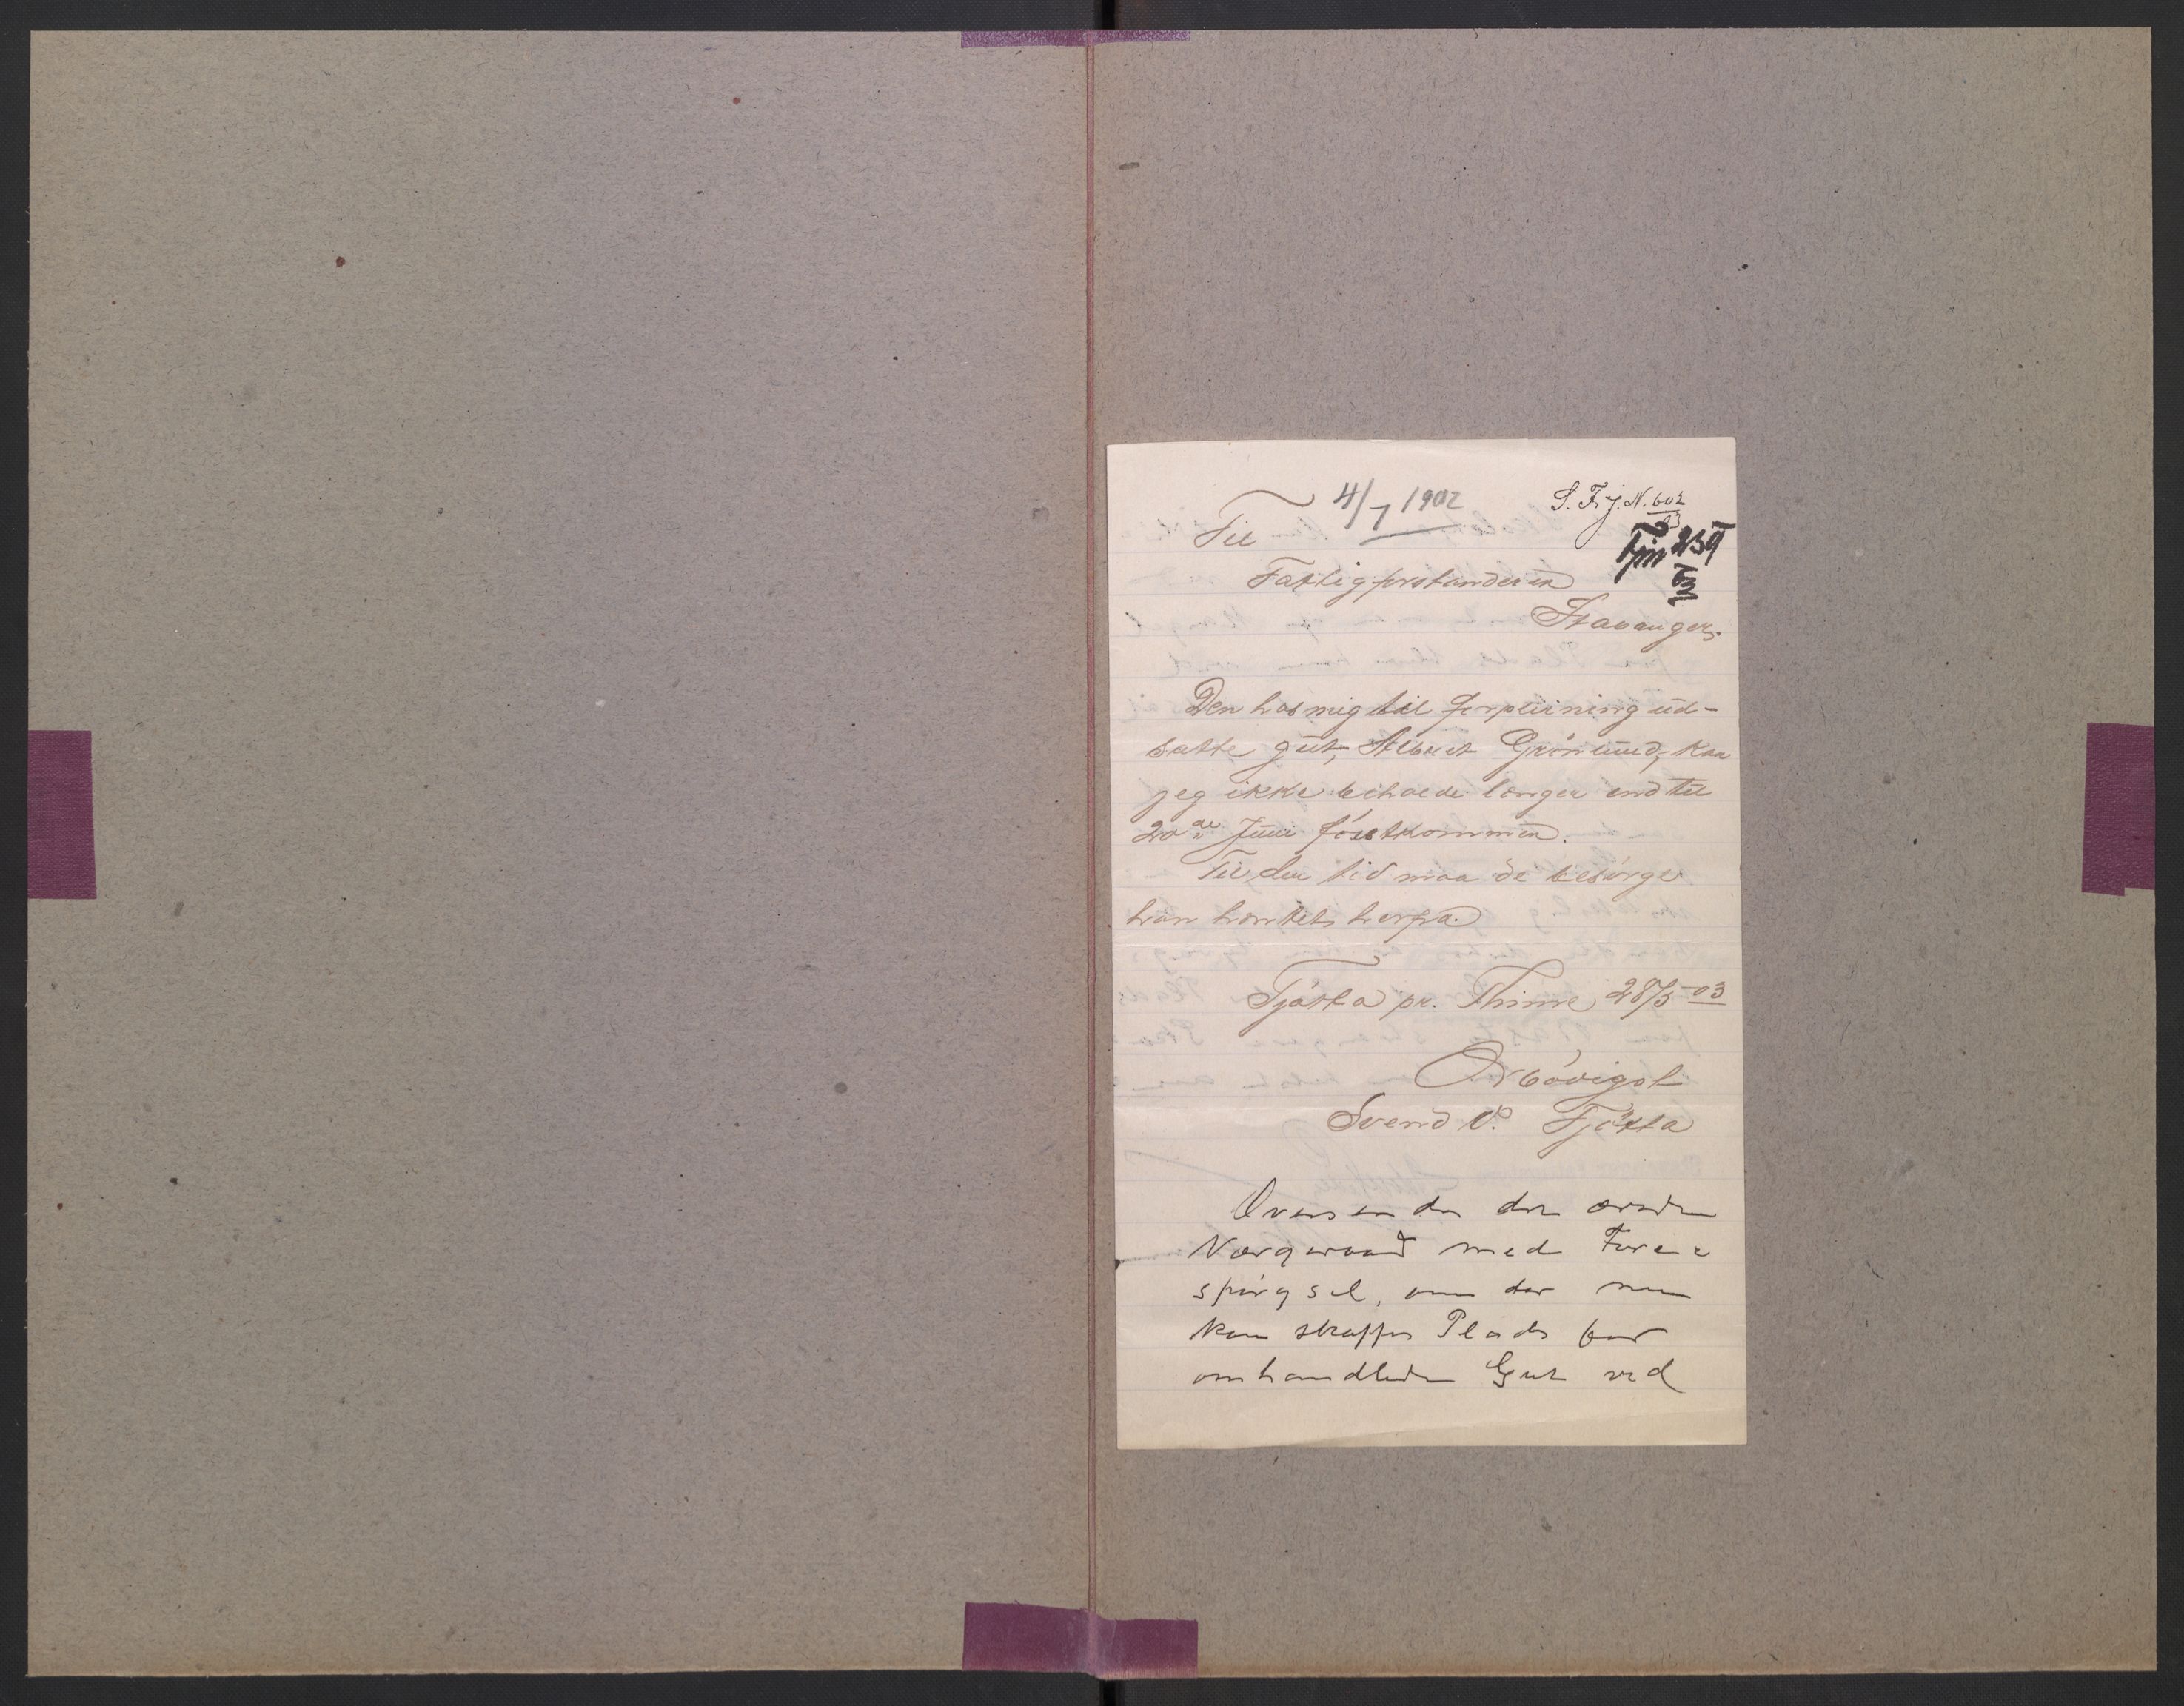 4/7 1902
S. F. J. N. 602/03
Til
Fattigforstanderen
Stavanger.
Den hos mig til forpleining ud-
satte gut, Albert Grönlund, kan
jeg ikke beholde længer end til
20de Juni förstkommen.
Til den tid maa de besörge
han hæntet herfra.
Tjötta pr. Thime 28/3-03
Ærbödigst
Svend V. Tjötta
Oversendes det ærede
Værgeraad med Fore=
spörgsel, om der nu
kan skaffes Plads for
omhandlede Gut ved